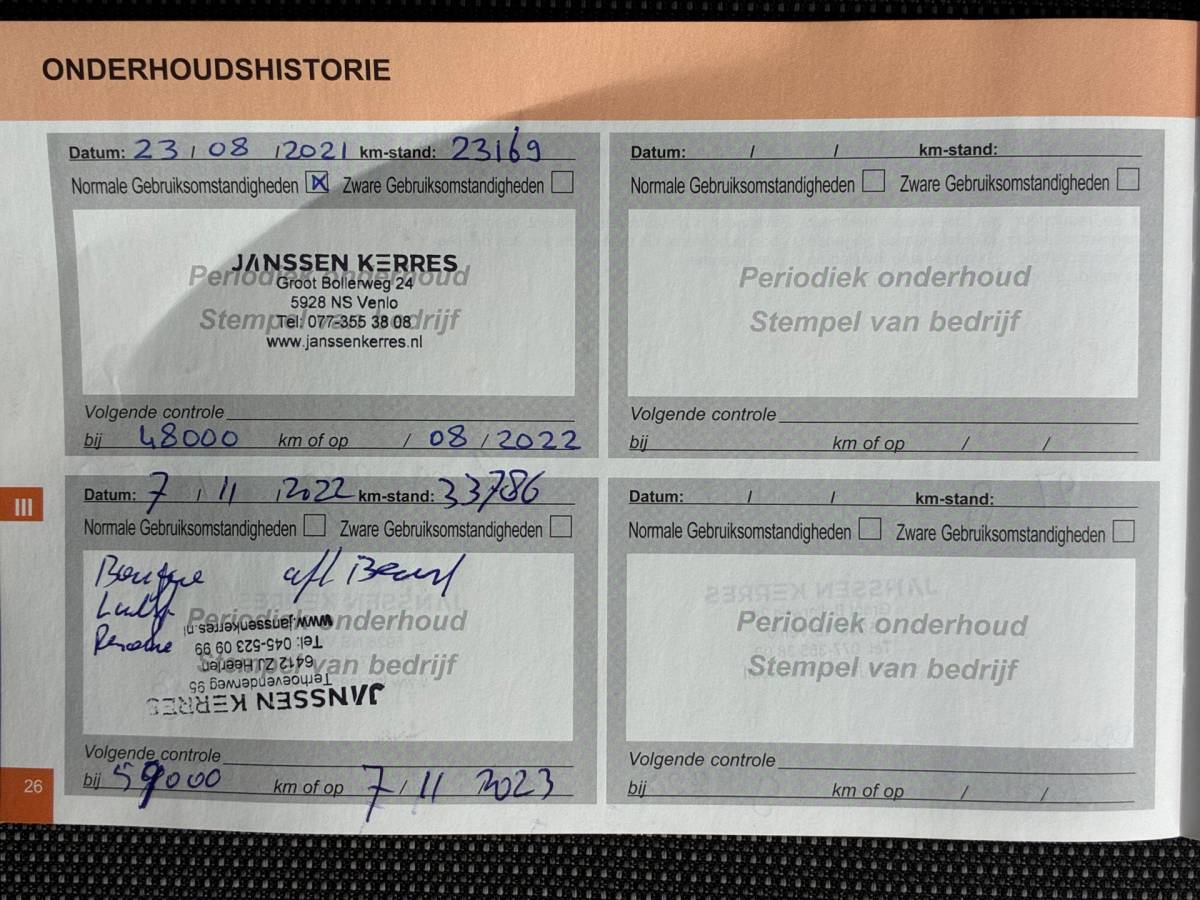 ONDERHOUDSHISTORIE
Datum: 23 / 08 / 2021 km-stand: 23169
Normale Gebruiksomstandigheden X Zware Gebruiksomstandigheden
Periodiek onderhoud
Stempel van bedrijf
JANSSEN KERRES
Groot Bollerweg 24
5928 NS Venlo
Tel: 077-355 38 08
www.janssenkerres.nl
Volgende controle
bij 48000 km of op / 08 / 2022
Datum: / / km-stand:
Normale Gebruiksomstandigheden Zware Gebruiksomstandigheden
Periodiek onderhoud
Stempel van bedrijf
Volgende controle
bij km of op / /
III
Datum: 7 / 11 / 2022 km-stand: 33786
Normale Gebruiksomstandigheden Zware Gebruiksomstandigheden
Periodiek onderhoud
Stempel van bedrijf
JANSSEN KERRES
Terhoevenderweg 95
6412 ZJ Heerlen
Tel: 045-523 09 99
www.janssenkerres.nl
Volgende controle
bij 59000 km of op 7 / 11 2023
Datum: / / km-stand:
Normale Gebruiksomstandigheden Zware Gebruiksomstandigheden
Periodiek onderhoud
Stempel van bedrijf
Volgende controle
bij km of op / /
26